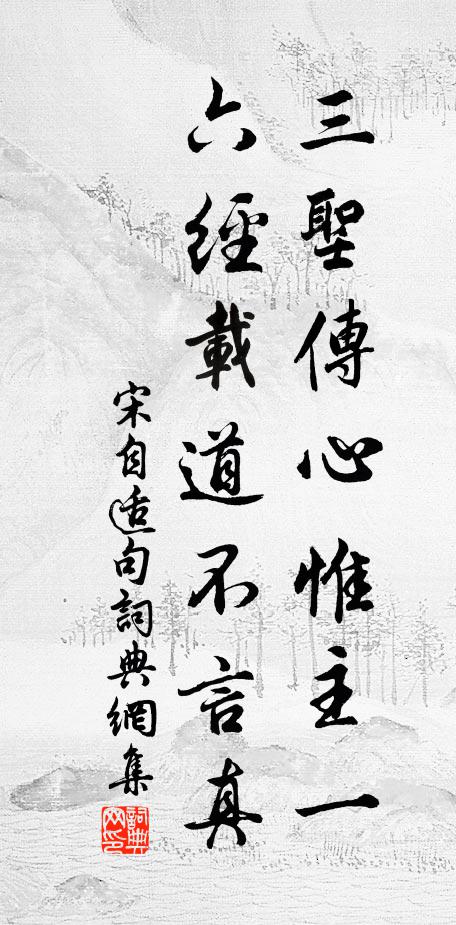 三聖傳心惟主一
六經載道不言真
宋自适句詞典網集
詞典網印